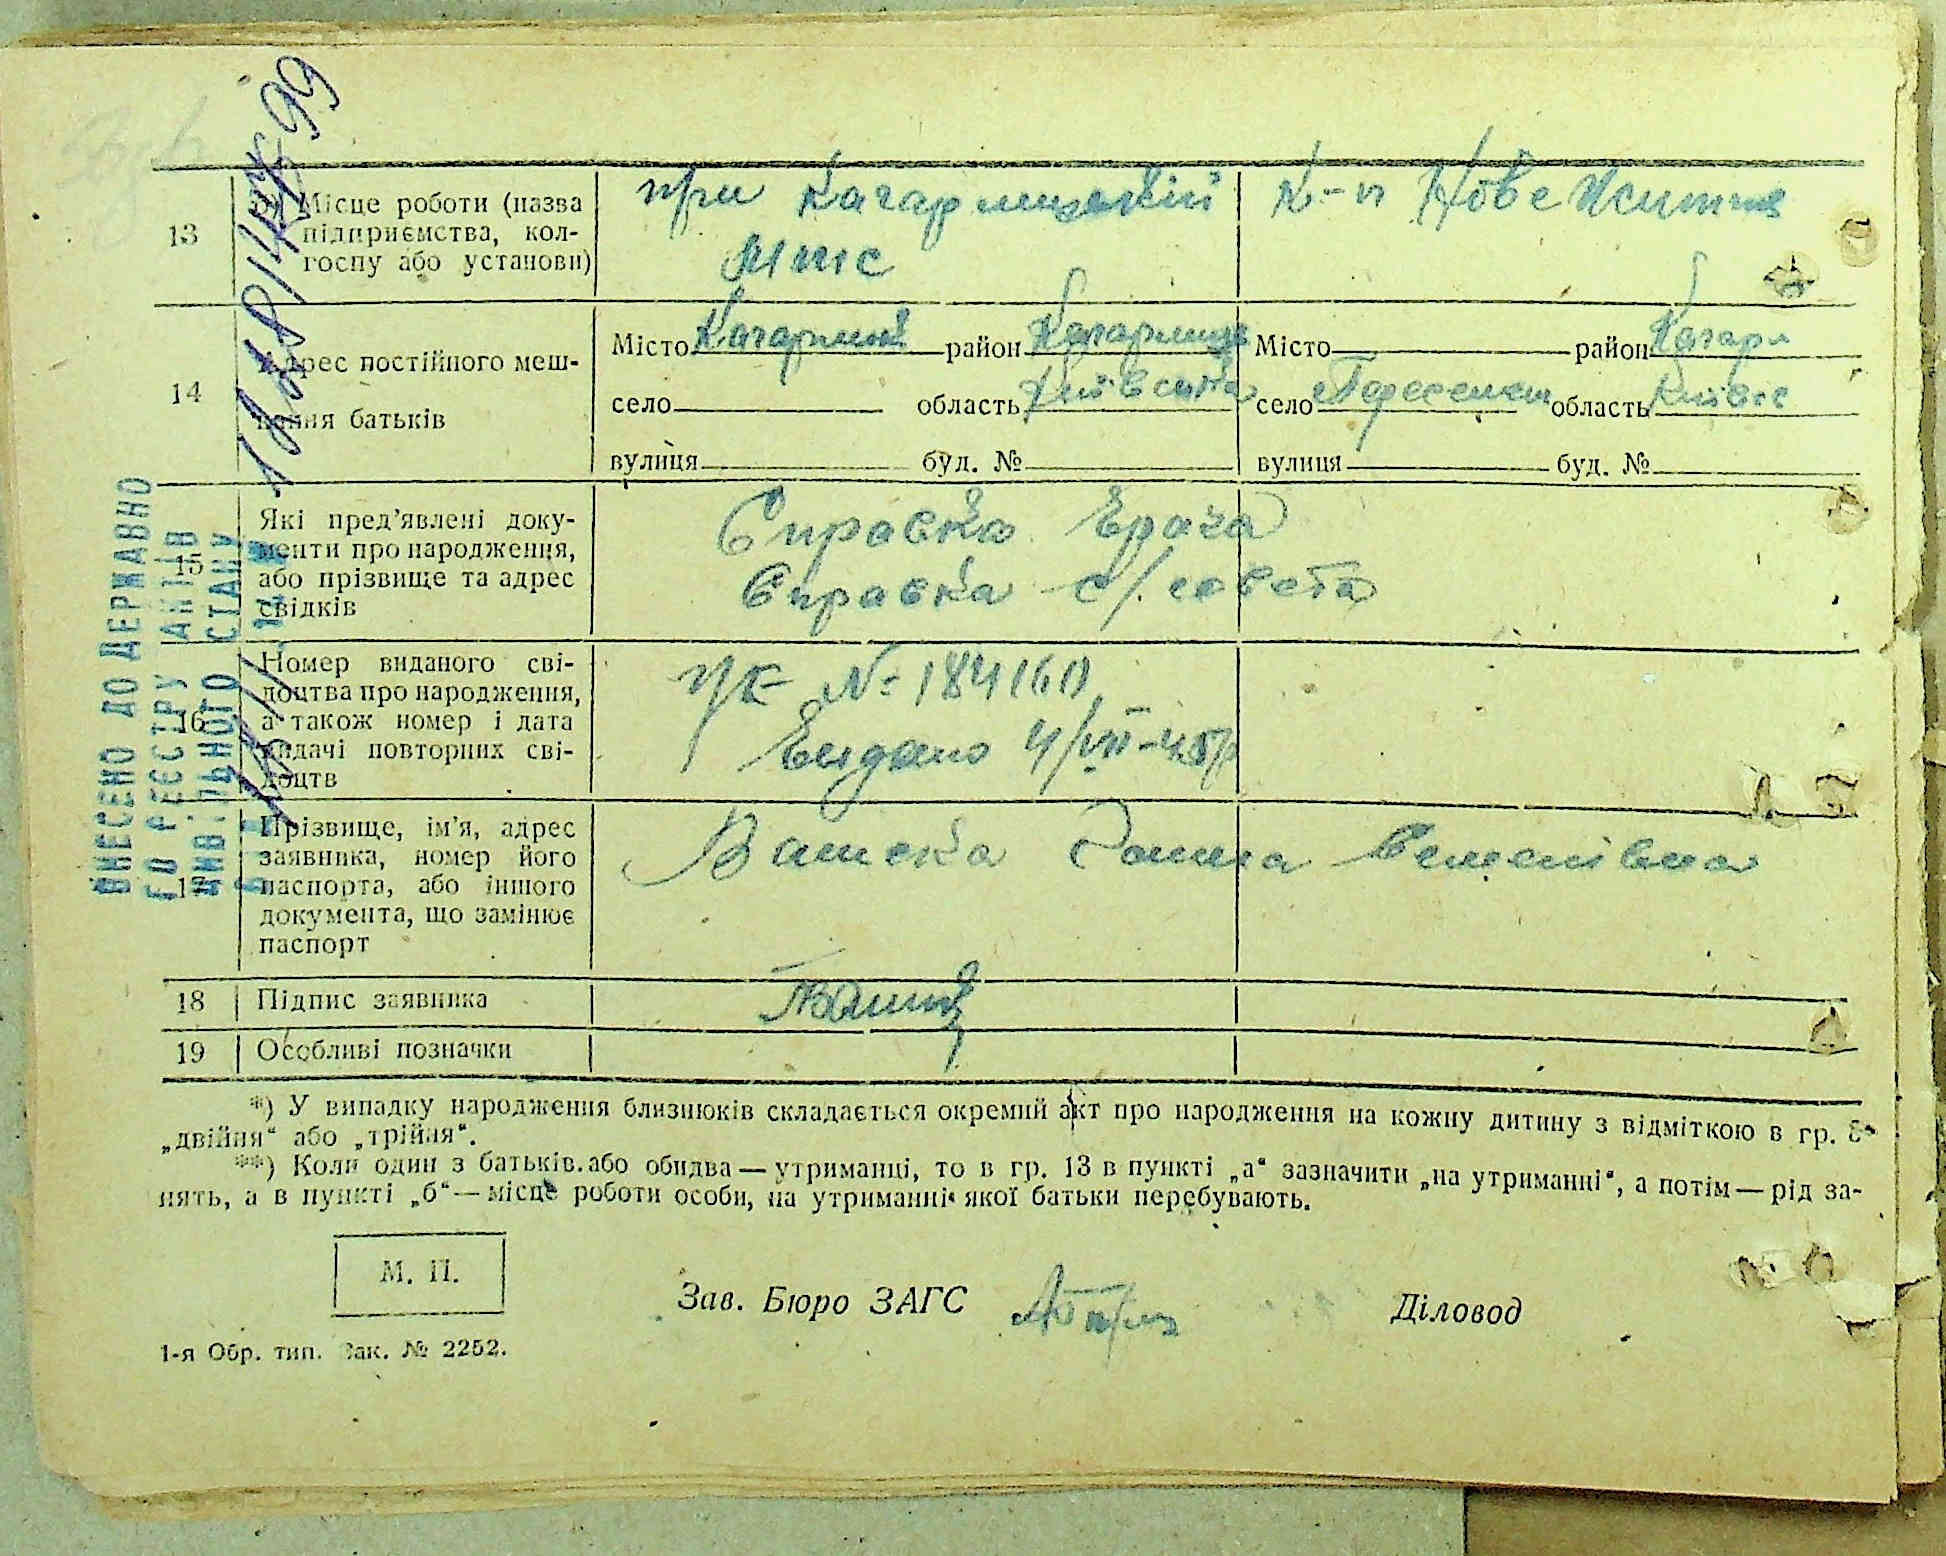 13
б) Місце роботи (назва
підприємства, кол-
госпу або установи)
при Кагарлицькій
МТС
К-п Нове Життя
14
Адрес постійного меш-
кання батьків
Місто Кагарлик район Кагарлицьк
село область Київська
вулиця буд. №
Місто район Кагарл
село область Київс
вулиця буд. №
15
Які пред'явлені доку-
менти про народження,
або прізвище та адрес
свідків
Справка врача
Справка с/совета
16
Номер виданого сві-
доцтва про народження,
а також номер і дата
видачі повторних сві-
доцтв
№ 184160
Видано 4/VII-45р
17
Прізвище, ім'я, адрес
заявника, номер його
паспорта, або іншого
документа, що замінює
паспорт
Семенівна
18
Підпис заявника
19
Особливі позначки
*) У випадку народження близнюків складається окремий акт про народження на кожну дитину з відміткою в гр. 5
„двійня“ або „трійня“.
**) Коли один з батьків або обидва — утриманці, то в гр. 13 в пункті „а“ зазначити „на утриманні“, а потім — рід за-
нять, а в пункті „б“ — місце роботи особи, на утриманні якої батьки перебувають.
М. П.
Зав. Бюро ЗАГС
Діловод
1-я Обр. тип. Зак. № 2252.
ВНЕСЕНО ДО ДЕРЖАВНО
ГО РЕЄСТРУ АКТІВ
ЦИВІЛЬНОГО СТАНУ